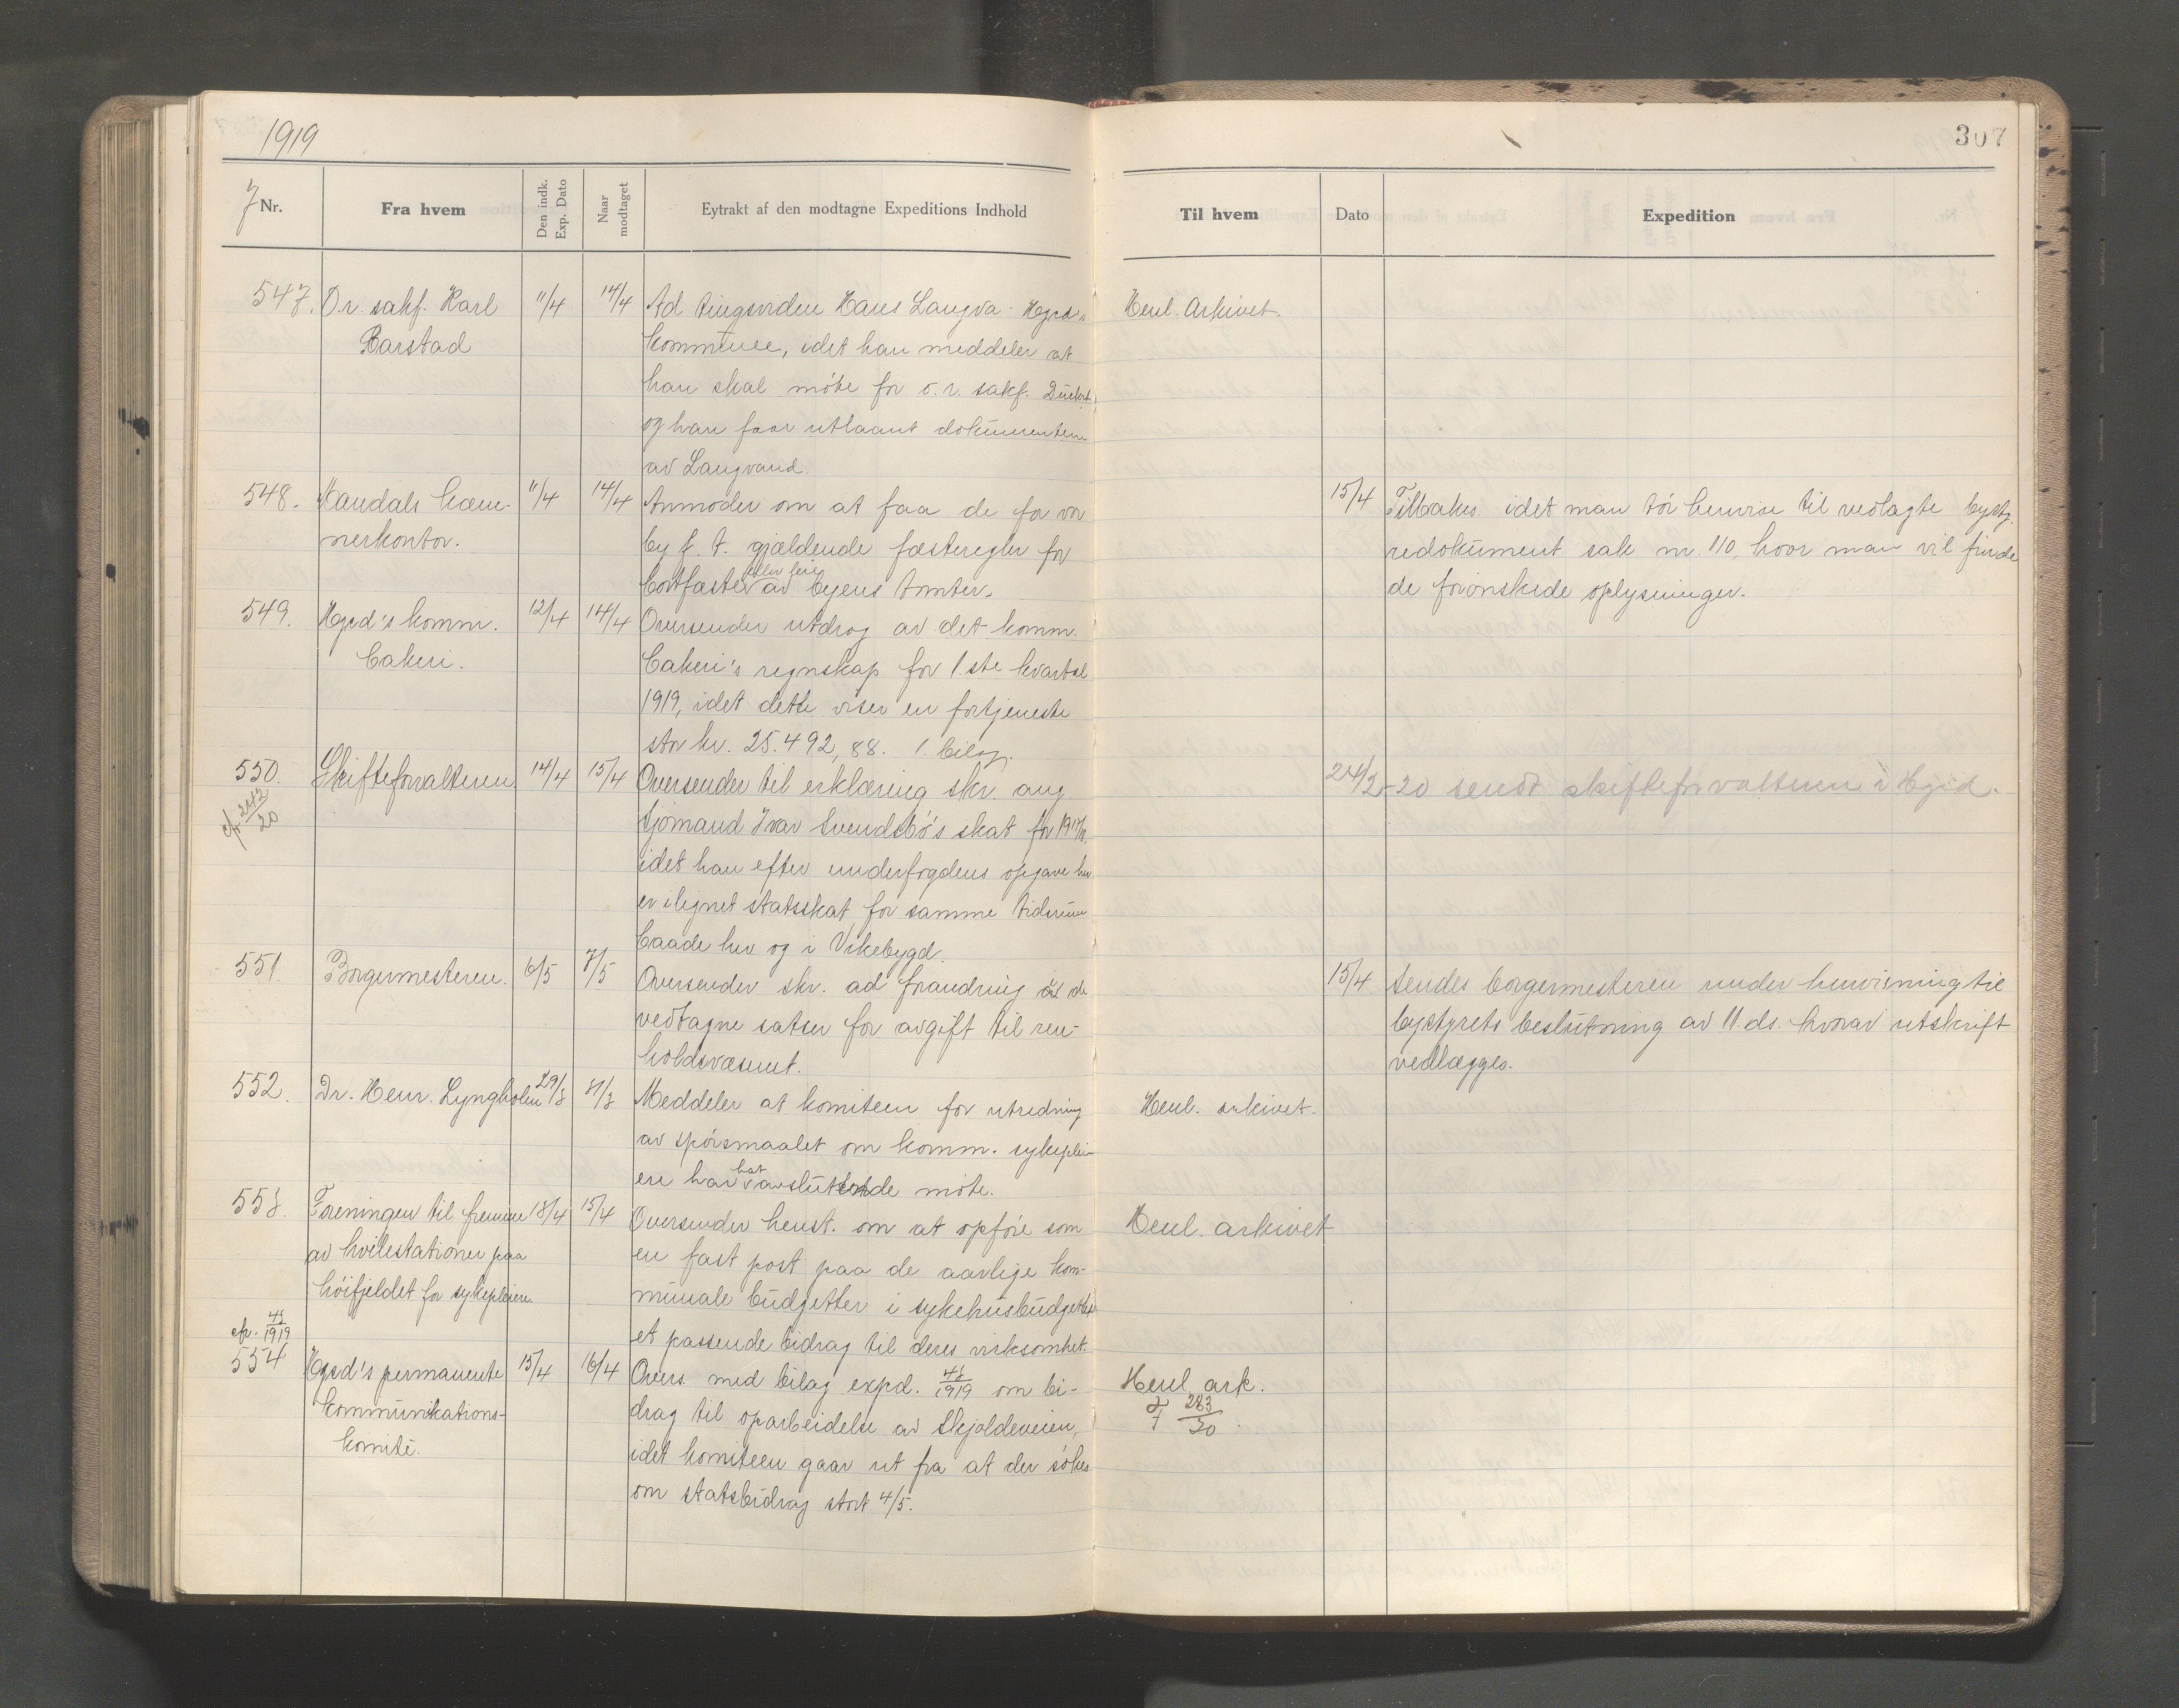 1919
307
J Nr.
Fra hvem
Den indk. Exp. Dato
Naar modtaget
Eytrakt af den modtagne Expeditions Indhold
Til hvem
Dato
Expedition
547. O.r. sakf. Karl 11/4 14/4 Ad tingsviden Hans Langva - Hgsd's Henl. Arkivet.
Barstad kommune, idet han meddeler at
han skal möte for o.r. sakf.
og han faar utlaant dokumenterne
av Langvand.
548. Mandals kæm- 11/4 14/4 Anmoder om at faa de for vor 15/4 Tilbakes. idet man tör henvise til vedlagte bysty-
nerkontor. by f. t. gjældende fæsteregler for redokument sak nr. 110, hvor man vil finde
eller leie
bortfæste av byens tomter. de forönskede oplysninger.
549. Hgsd's komm. 12/4 14/4 Oversender utdrag av det komm.
bakeri. bakeri's regnskap for 1.ste kvartal
1919, idet dette viser en fortjeneste
stor kr. 25.492,88. 1 bilag.
550. Skifteforvalteren 14/4 15/4 Oversender til erklæring skr. ang 24/2-20 sendt skifteforvalteren i Hgsd.
cfr 242/20 sjömand Ivar Svendsbö's skat for 1917/18,
idet han efter underfogdens opgave her
er ilignet statsskat for samme tidsrum
baade her og i Vikebygd.
551. Borgermesteren. 6/5 7/5 Oversender skr. ad forandring i de 15/4 Sendes borgermesteren under henvisning til
vedtagne satser for avgift til ren- bystyrets beslutning av 11. ds. hvorav utskrift
holdsvæsenet. vedlægges.
552. Dr. Henr. Lyngholm 29/3 31/3 Meddeler at komiteen for utredning Henl. arkivet.
av spörsmaalet om komm. sykeplei-
hat
en har avsluttende möte.
553. Foreningen til fremme 13/4 15/4 Oversender henst. om at opföre som Henl. arkivet
av hvilestationer paa en fast post paa de aarlige kom-
höifjeldet for sykepleiere. munale budgetter i sykehusbudgettet
et passende bidrag til deres virksomhet.
cfr. 43/1919
554 Hgsd's permanente 15/4 16/4 Overs. med bilag expd. 43/1919 om bi- Henl. ark.
kommunikations- drag til oparbeidelse av Skjoldeveien, 283/20.
komité. idet komiteen gaar ut fra at der sökes
om statsbidrag stort 4/5.